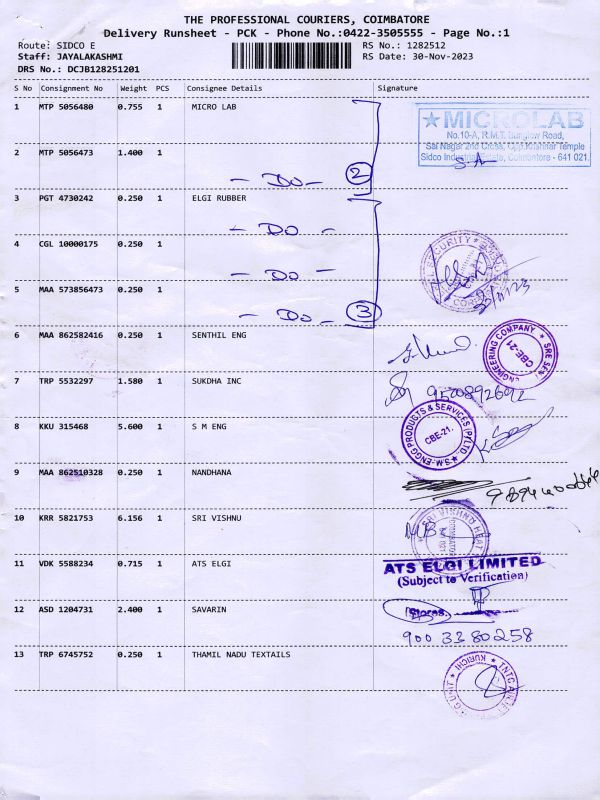 THE PROFESSIONAL COURIERS, COIMBATORE
Delivery Runsheet - PCK - Phone No.:0422-3505555 - Page No.:1
Route: SIDCO E
RS No.: 1282512
Staff: JAYALAKASHMI
RS Date: 30-Nov-2023
DRS No.: DCJB128251201
S No Consignment No Weight PCS Consignee Details Signature
1 MTP 5056480 0.755 1 MICRO LAB
★ MICROLAB
No.10-A, R.M.T. Bunglow Road,
Sai Nagar 2nd Cross, Opp.Krishnar Temple
Sidco Industrial Estate, Coimbatore - 641 021.
2 MTP 5056473 1.400 1
- Do - 2
3 PGT 4730242 0.250 1 ELGI RUBBER
- Do -
4 CGL 10000175 0.250 1
- Do -
5 MAA 573856473 0.250 1
- Do - 3
SECURITY
6 MAA 862582416 0.250 1 SENTHIL ENG
ENGINEERING COMPANY ★ SRE SEN
CBE-21
7 TRP 5532297 1.580 1 SUKDHA INC
8 KKU 315468 5.600 1 S M ENG
S.M. ENGG PRODUCTS & SERVICES (P) LTD.
CBE-21.
9 MAA 862510328 0.250 1 NANDHANA
10 KRR 5821753 6.156 1 SRI VISHNU
SRI VISHNU HEAT
11 VDK 5588234 0.715 1 ATS ELGI
ATS ELGI LIMITED
(Subject to Verification)
12 ASD 1204731 2.400 1 SAVARIN
Stores.
900 3380258
13 TRP 6745752 0.250 1 THAMIL NADU TEXTAILS
KURICHI